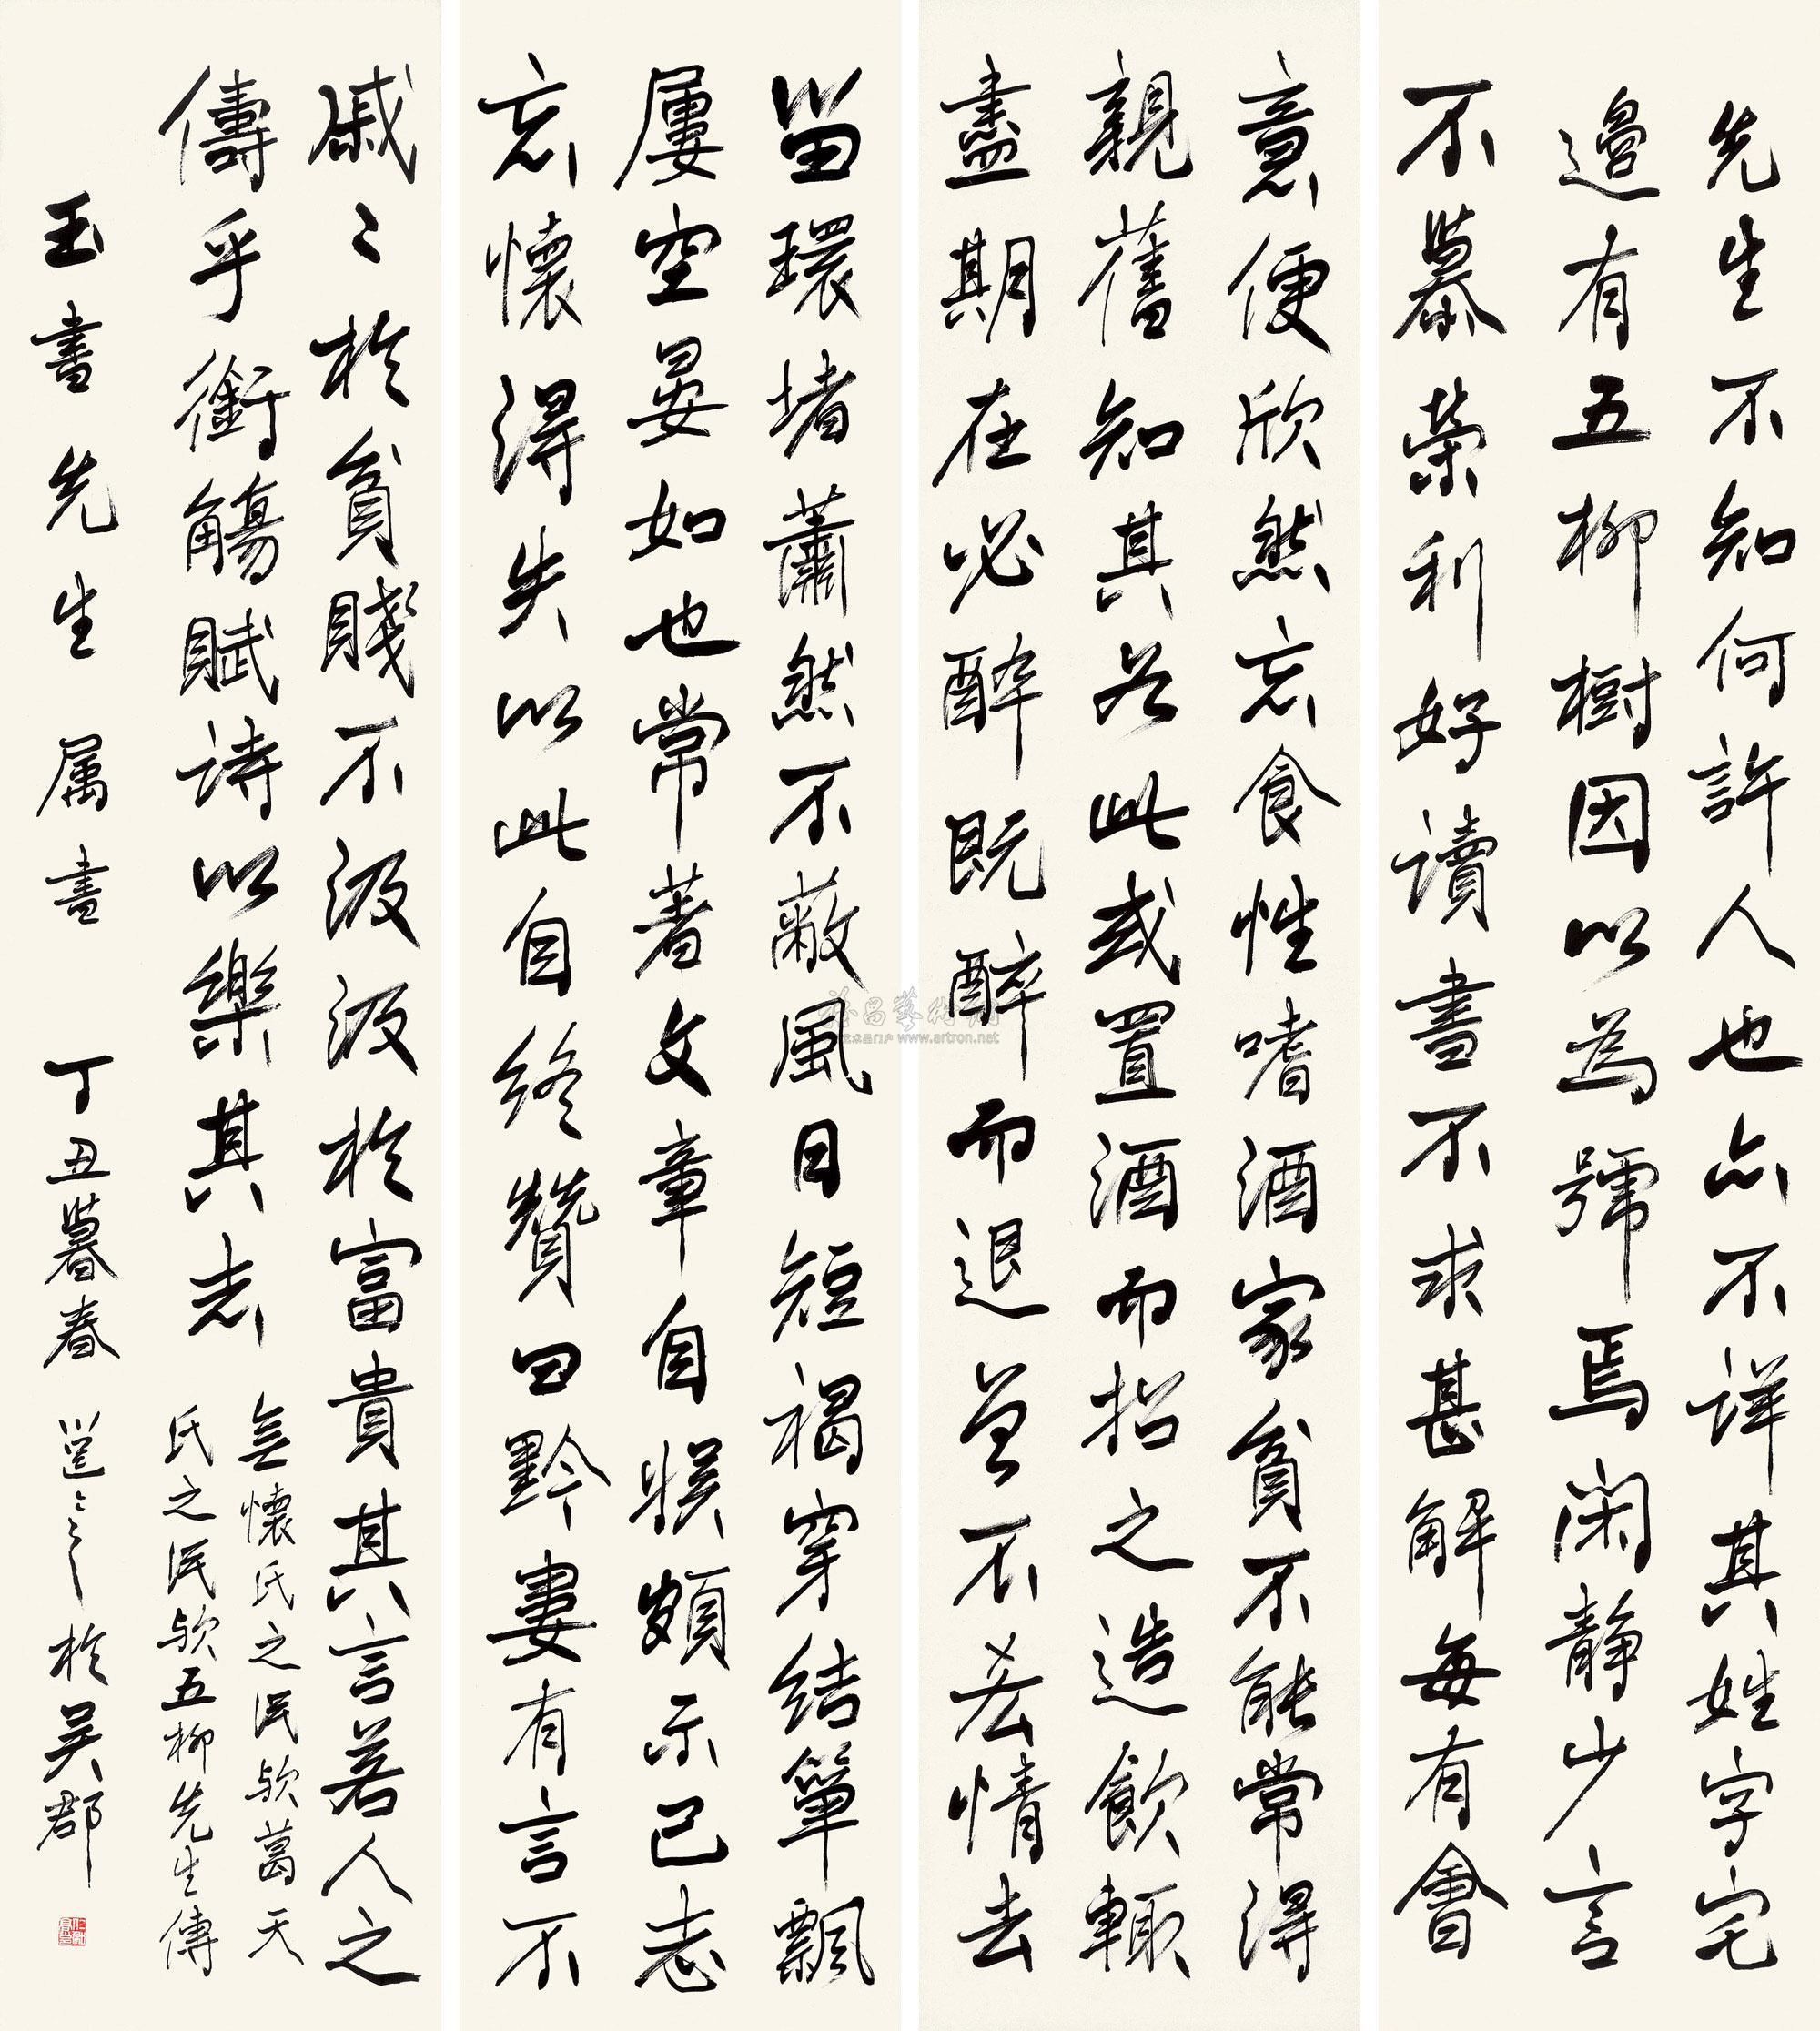 先生不知何許人也亦不詳其姓字宅
邊有五柳樹因以為號焉閑靜少言
不慕榮利好讀書不求甚解每有會
意便欣然忘食性嗜酒家貧不能常得
親舊知其如此或置酒而招之造飲輒
盡期在必醉既醉而退曾不吝情去
留環堵蕭然不蔽風日短褐穿結簞瓢
屢空晏如也常著文章自娛頗示己志
忘懷得失以此自終贊曰黔婁有言不
戚〻於貧賤不汲汲於富貴其言若人之
儔乎銜觴賦詩以樂其志
無懷氏之民歟葛天
氏之民歟五柳先生傳
玉書先生属書 丁丑暮春 於吳郡
雅昌藝術網
www.artron.net